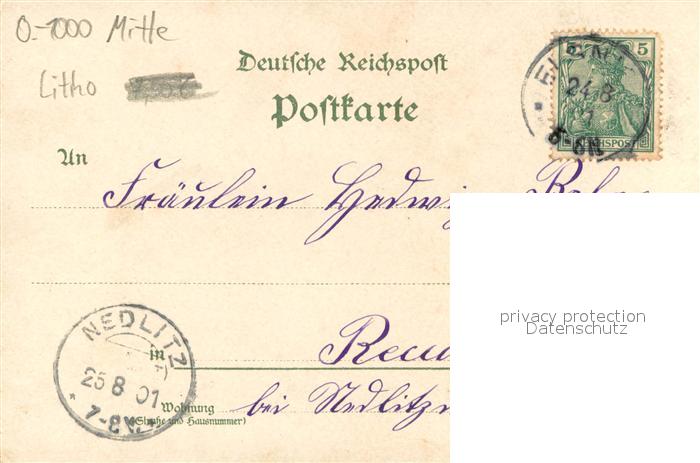 0.-1000 Mitte
Litho
Deutsche Reichspost
Postkarte
5
REICHSPOST
24.8
An
Fräulein Hedwig
privacy protection
Datenschutz
NEDLITZ
25 8 01
7-8V.
in
Wohnung
(Straße und Hausnummer)
bei Nedlitz